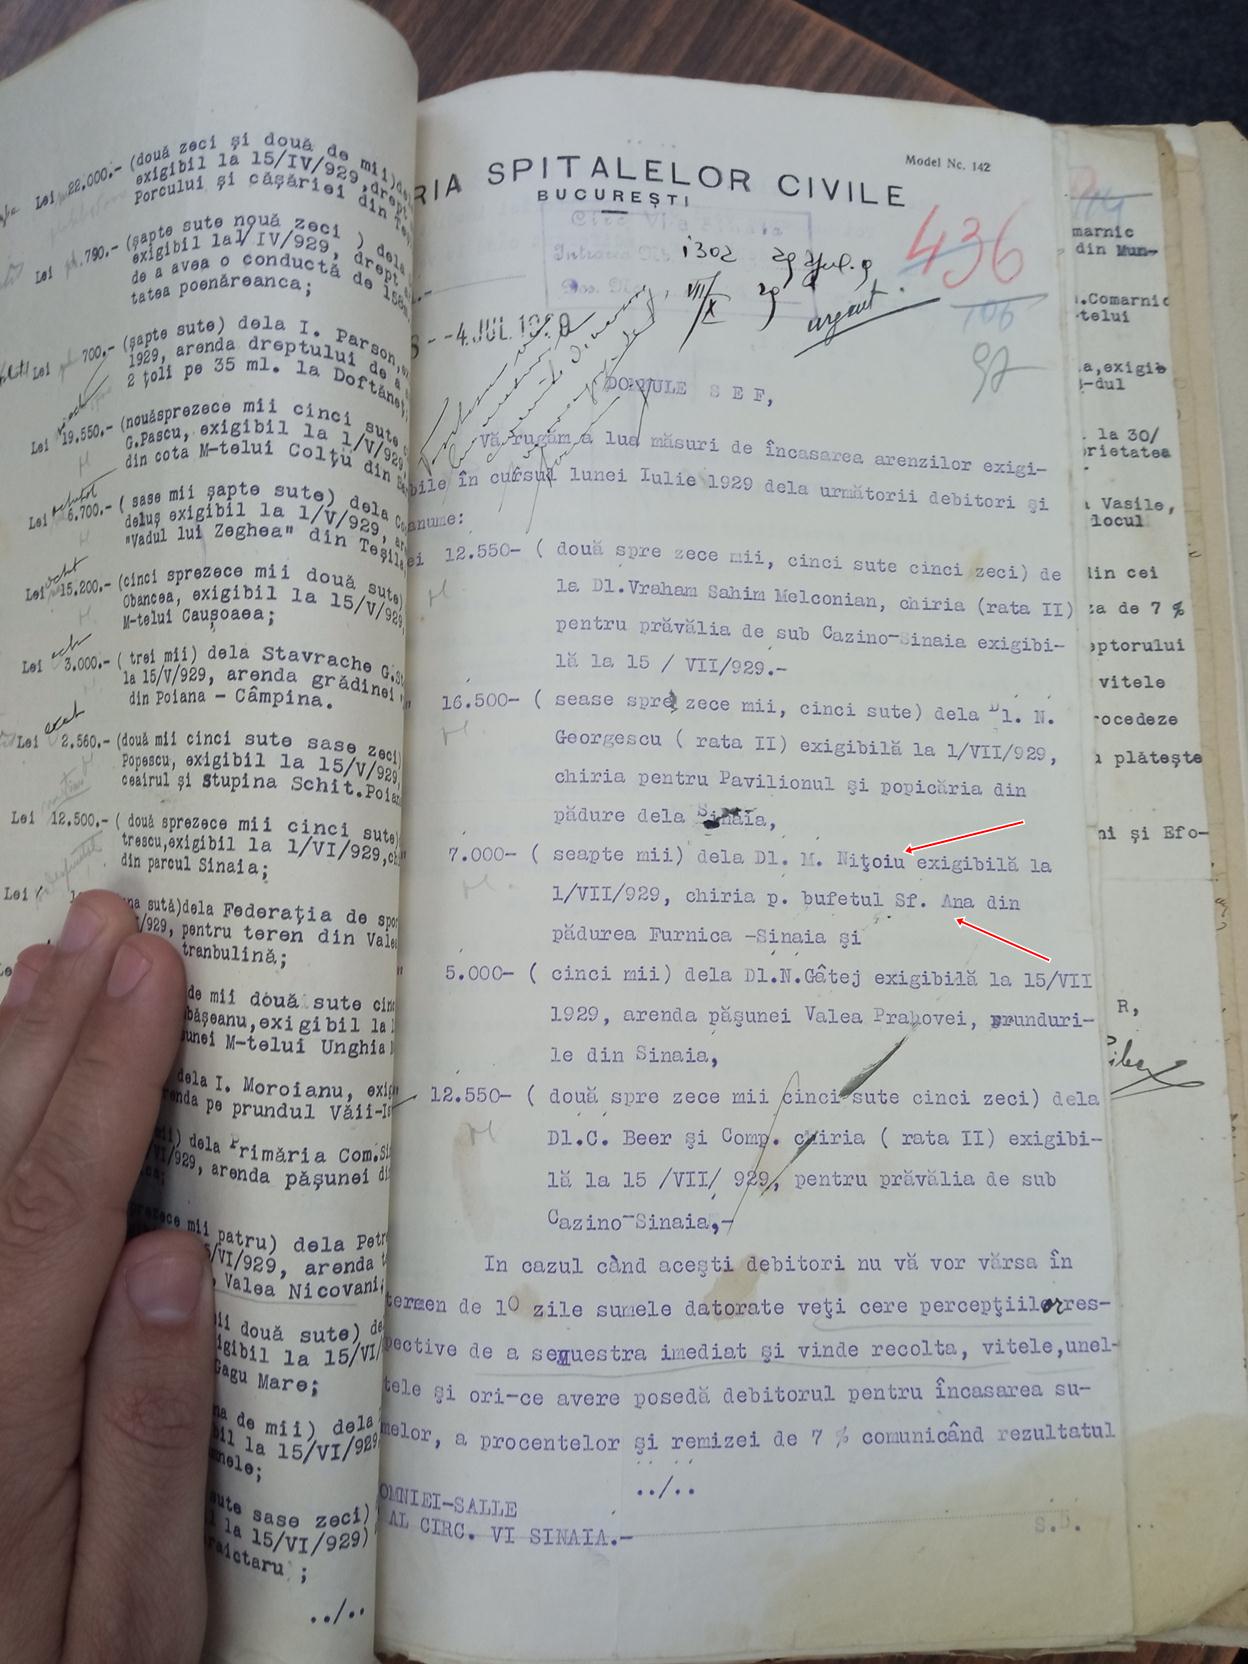 Lei 22.000.- (două zeci și două de mii)
exigibil la 15/IV/929, drept
Porcului și cășăriei din
Lei 790.- (șapte sute nouă zeci ) dela
exigibil la 1/IV/929, drept
de a avea o conductă de
tatea poenăreanca;
Lei 700.- (șapte sute) dela I. Parson,
1929, arenda dreptului de a
2 țoli pe 35 ml. la Doftăne
Lei 19.550.- (nouăsprezece mii cinci sute
G.Pascu, exigibil la 1/V/929
din cota M-telui Colțu din
Lei 6.700.- ( sase mii șapte sute) dela
deluș exigibil la 1/V/929,
"Vadul lui Zeghea" din Teșila
Lei 15.200.- (cinci sprezece mii două sute)
Obancea, exigibil la 15/V/929,
M-telui Caușoaea;
Lei 3.000.- ( trei mii) dela Stavrache G.
la 15/V/929, arenda grădinei
din Poiana - Câmpina.
Lei 2.560.- (două mii cinci sute sase zeci)
Popescu, exigibil la 15/V/929,
ceairul și stupina Schit.Poia
Lei 12.500.- ( două sprezece mii cinci sute)
trescu,exigibil la 1/VI/929,
din parcul Sinaia;
Lei
sută)dela Federația de spo
/929, pentru teren din Vale
tranbulină;
de mii două sute cinc
bășeanu,exigibil la
unei M-telui Unghia
dela I. Moroianu,
enda pe prundul Văii-
) dela Primăria Com.Si
/VI/929, arenda pășunei di
mii patru) dela Petr
/VI/929, arenda
, Valea Nicovani;
două sute)
igibil la 15/VI/
Gagu Mare;
de mii) dela
bil la 15/VI/929
sute sase zeci)
la 15/VI/929)
raictaru ;
../..
RIA SPITALELOR CIVILE
Model Nc. 142
BUCUREȘTI
436
1302
106
97
urgent.
-4.JUL.19
DOMNULE SEF,
Vă rugăm a lua măsuri de încasarea arenzilor exigi-
bile în cursul lunei Iulie 1929 dela următorii debitori și
anume:
ei 12.550- ( două spre zece mii, cinci sute cinci zeci) de
la Dl.Vraham Sahim Melconian, chiria (rata II)
pentru prăvălia de sub Cazino-Sinaia exigibi-
lă la 15 / VII/929.-
16.500- ( sease spre zece mii, cinci sute) dela Dl. N.
Georgescu ( rata II) exigibilă la 1/VII/929,
chiria pentru Pavilionul și popicăria din
pădure dela Sinaia,
7.000- ( seapte mii) dela Dl. M. Nițoiu exigibilă la
1/VII/929, chiria p. bufetul Sf. Ana din
pădurea Furnica -Sinaia și
5.000- ( cinci mii) dela Dl.N.Gâtej exigibilă la 15/VII
1929, arenda pășunei Valea Prahovei, prunduri-
le din Sinaia,
12.550- ( două spre zece mii cinci sute cinci zeci) dela
Dl.C. Beer și Comp. chiria ( rata II) exigibi-
lă la 15 /VII/ 929, pentru prăvălia de sub
Cazino-Sinaia,-
In cazul când acești debitori nu vă vor vărsa în
termen de 10 zile sumele datorate veți cere percepțiilor res-
pective de a sequestra imediat și vinde recolta, vitele,unel-
tele și ori-ce avere posedă debitorul pentru încasarea su-
melor, a procentelor și remizei de 7 % comunicând rezultatul
../..
OMNIEI-SALLE
AL CIRC. VI SINAIA.-
S.D.
marnic
din Mun-
.Comarnic
telui
a,exigib
-dul
la 30/
prietatea
Vasile,
locul
din cei
za de 7 %
eptorului
vitele
rocedeze
u plătește
ni și Efo-
R,